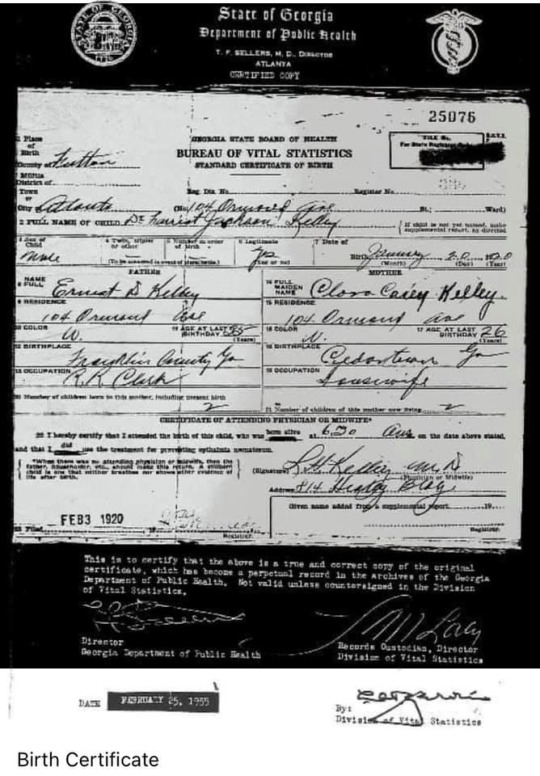 State of Georgia
Department of Public Health
T. F. SELLERS, M. D., DIRECTOR
ATLANTA
CERTIFIED COPY
25076
1 Place of Birth
GEORGIA STATE BOARD OF HEALTH
BUREAU OF VITAL STATISTICS
STANDARD CERTIFICATE OF BIRTH
FILE No.
County of Fulton
Militia District of
Reg Dis No. Register No.
Town or
City of Atlanta (No. 104 Ormond Ave St.; Ward)
2 FULL NAME OF CHILD De Forrest Jackson Kelley
If child is not yet named, make supplemental report, as directed
3 Sex of Child Male
4 Twin, triplet or other
5 Number in order of birth
6 Legitimate? Yes
7 Date of Birth January 20 1920
(Month) (Day) (Year)
FATHER
MOTHER
FULL NAME Ernest D Kelley
FULL MAIDEN NAME Clora Casey Kelley
RESIDENCE 104 Ormond Ave
15 RESIDENCE 104 Ormond Ave
10 COLOR W.
11 AGE AT LAST BIRTHDAY (Years)
16 COLOR W.
17 AGE AT LAST BIRTHDAY 26 (Years)
12 BIRTHPLACE Franklin County Ga
18 BIRTHPLACE Cedartown Ga
13 OCCUPATION R.R. Clerk
19 OCCUPATION Housewife
20 Number of children born to this mother, including present birth 2
21 Number of children of this mother now living 2
CERTIFICATE OF ATTENDING PHYSICIAN OR MIDWIFE*
22 I hereby certify that I attended the birth of this child, who was born alive at 6:30 A m. on the date above stated,
and that I did use the treatment for preventing opthalmia neonatorum.
*When there was no attending physician or midwife, then the father, householder, etc., should make this return. A stillborn child is one that neither breathes nor shows other evidence of life after birth.
(Signature) Kelley M D
(Physician or Midwife)
Address 414 Healey Bldg
Given name added from a supplemental report 19
FEB 3 1920
Registrar.
Registrar.
This is to certify that the above is a true and correct copy of the original
certificate, which has become a perpetual record in the archives of the Georgia
Department of Public Health. Not valid unless countersigned in the Division
of Vital Statistics.
Director
Georgia Department of Public Health
Records Custodian, Director
Division of Vital Statistics
DATE FEBRUARY 25, 1955
By:
Division of Vital Statistics
Birth Certificate